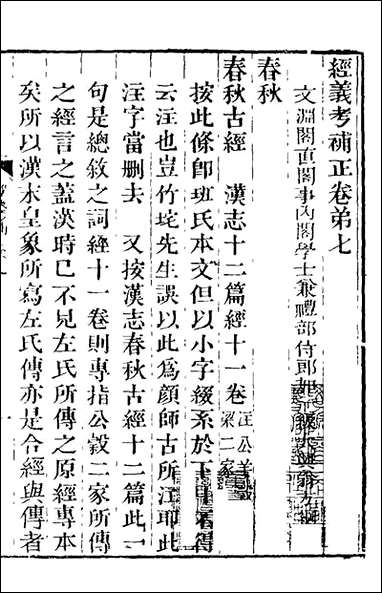 經義考補正卷弟七
文淵閣直閣事內閣學士兼禮部侍郎
春秋
春秋古經　漢志十二篇經十一卷 注公羊
穀梁二家
按此條卽班氏本文但以小字綴系於下
云注也豈竹垞先生誤以此為顏師古所注耶此
注字當删去　又按漢志春秋古經十二篇此一
句是總敘之詞經十一卷則專指公穀二家所傳
之經言之蓋漢時已不見左氏所傳之原經專本
矣所以漢末皇象所寫左氏傳亦是合經與傳者